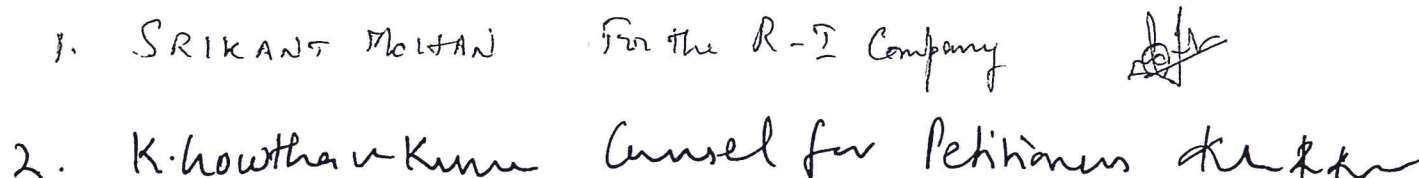 1. SRIKANT MOHAN For the R-I Company
2. K. Gowtham Kumar Counsel for Petitioners